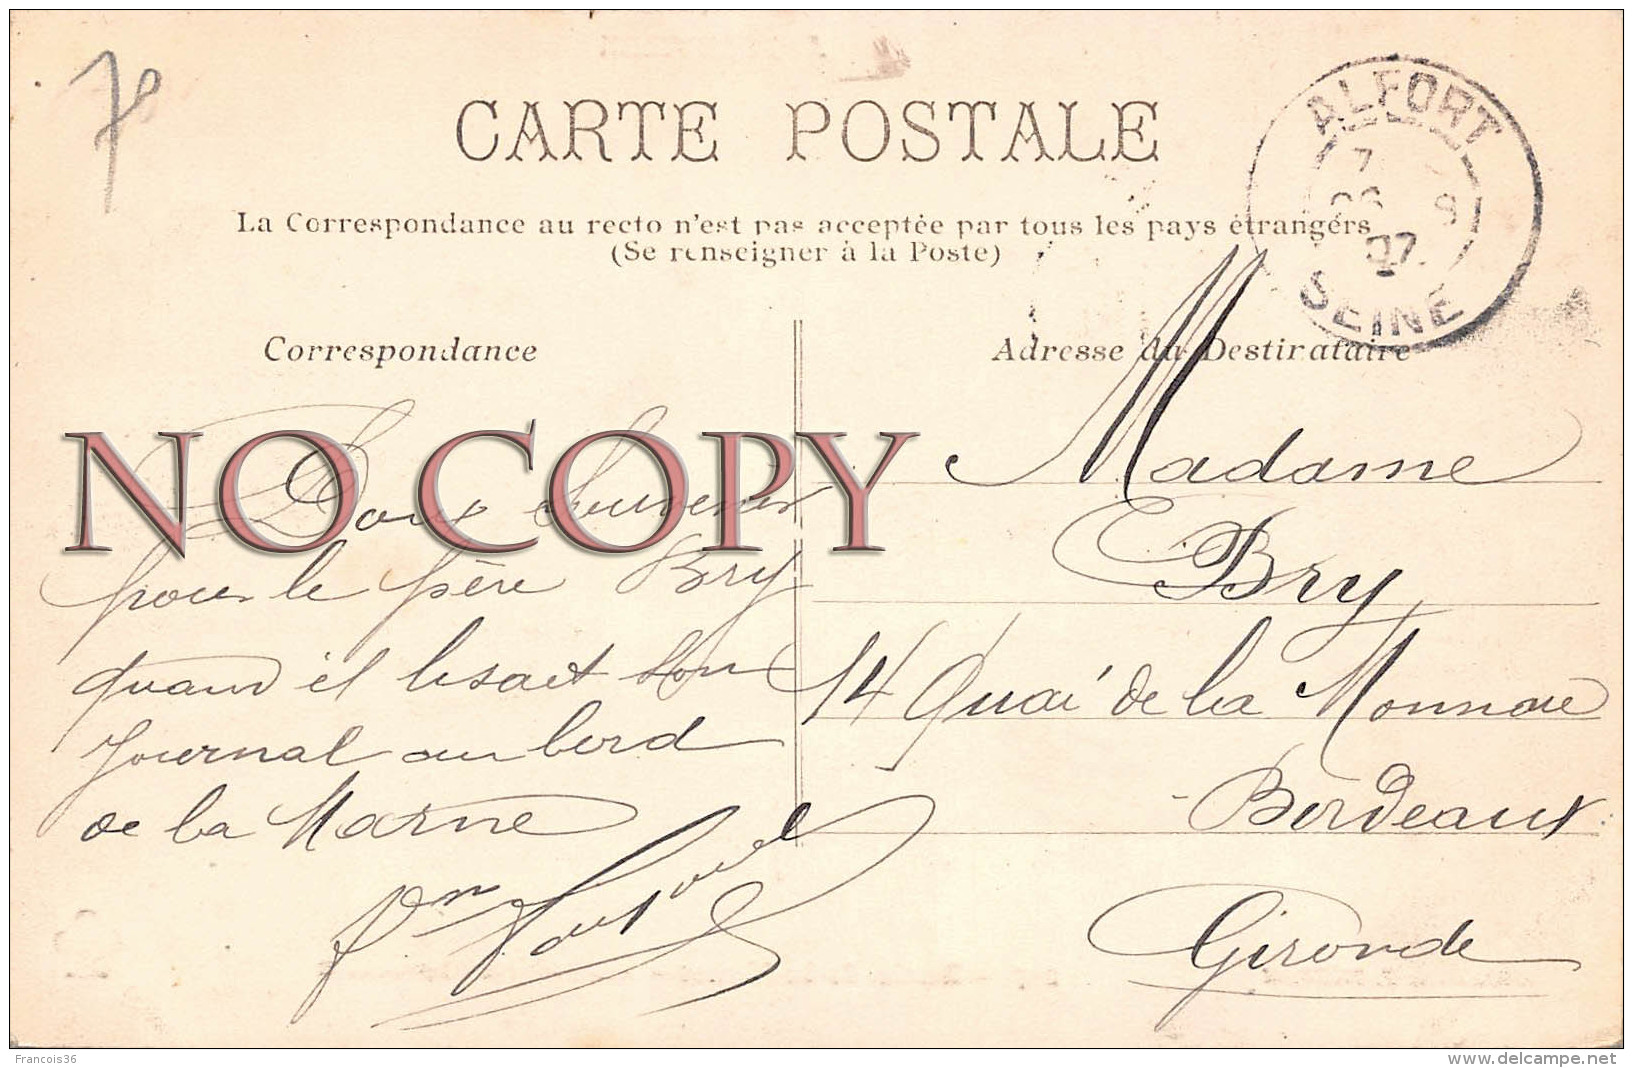 70
CARTE POSTALE
La Correspondance au recto n'est pas acceptée par tous les pays étrangers
(Se renseigner à la Poste)
ALFORT
7
8
07
SEINE
Correspondance
Doux Souvenir
pour le père Bry
quand il lisait son
journal au bord
de la Marne
Adresse du Destinataire
Madame
Bry
14 Quai de la Monnaie
Bordeaux
Gironde
NO COPY
Francois36
www.delcampe.net